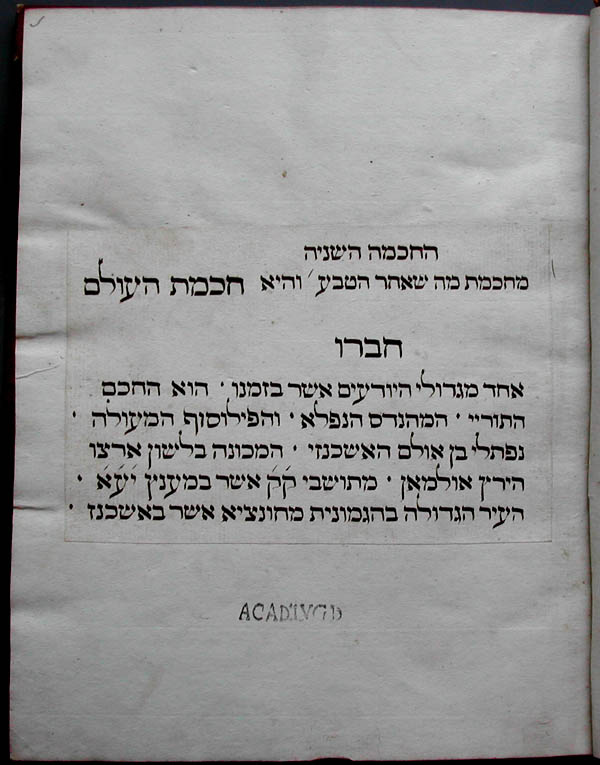 החכמה השניה
מחכמת מה שאחר הטבע׳ והיא חכמת העולם
חברו
אחד מגדולי היודעים אשר בזמנו · הוא החכם
התוריי · המהנדס הנפלא · והפילוסוף המעולה ·
נפתלי בן אולם האשכנזי · המכונה בלשון ארצו
הירץ אולמאן · מתושבי ק׳ק׳ אשר במענץ י׳ע׳א׳ ·
העיר הגדולה בהגמונית מחונציא אשר באשכנז ·
ACAD LVGD